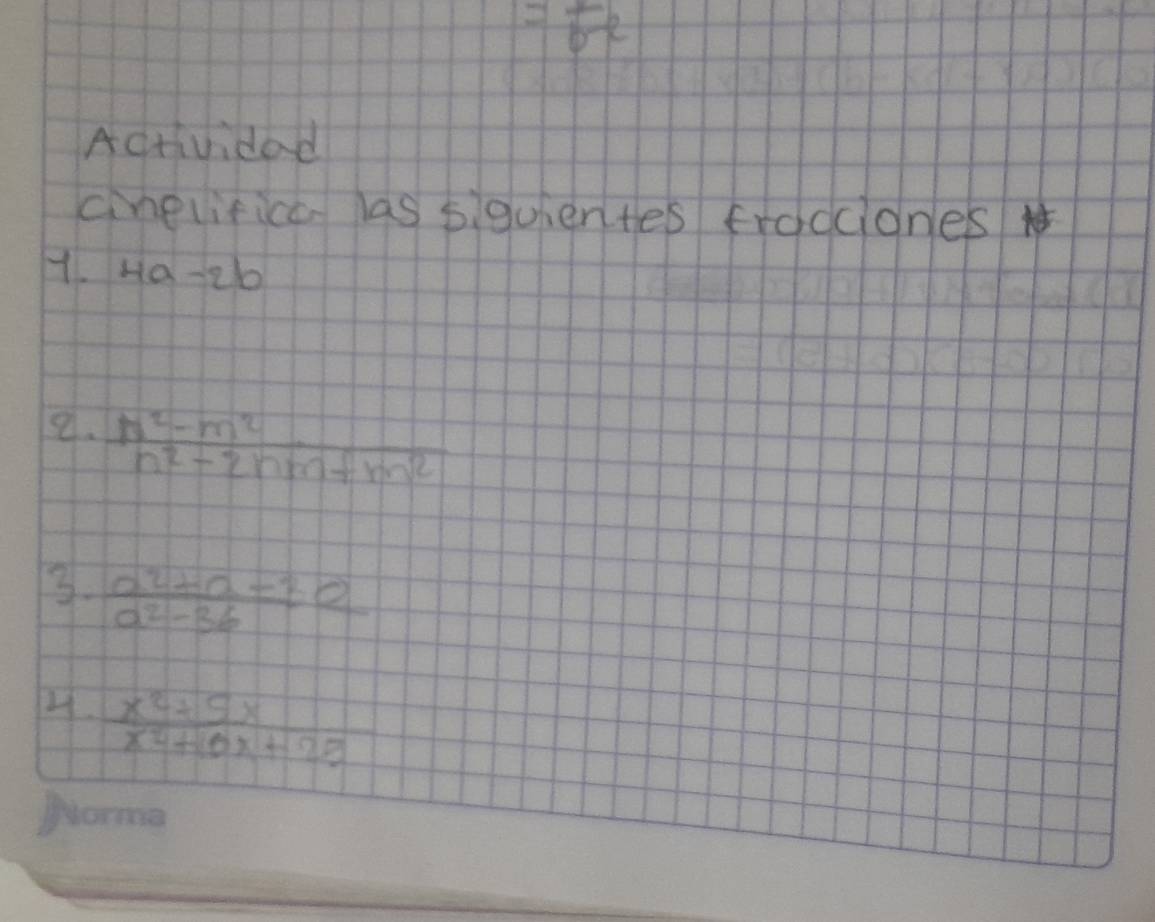 Actividad
cinplifica las siguientes fracciones
1. 4a-2b
2. n²-m²
n²-2nm+m²
3.
a²-36
4. x²+5x
x²+10x+25
Norma